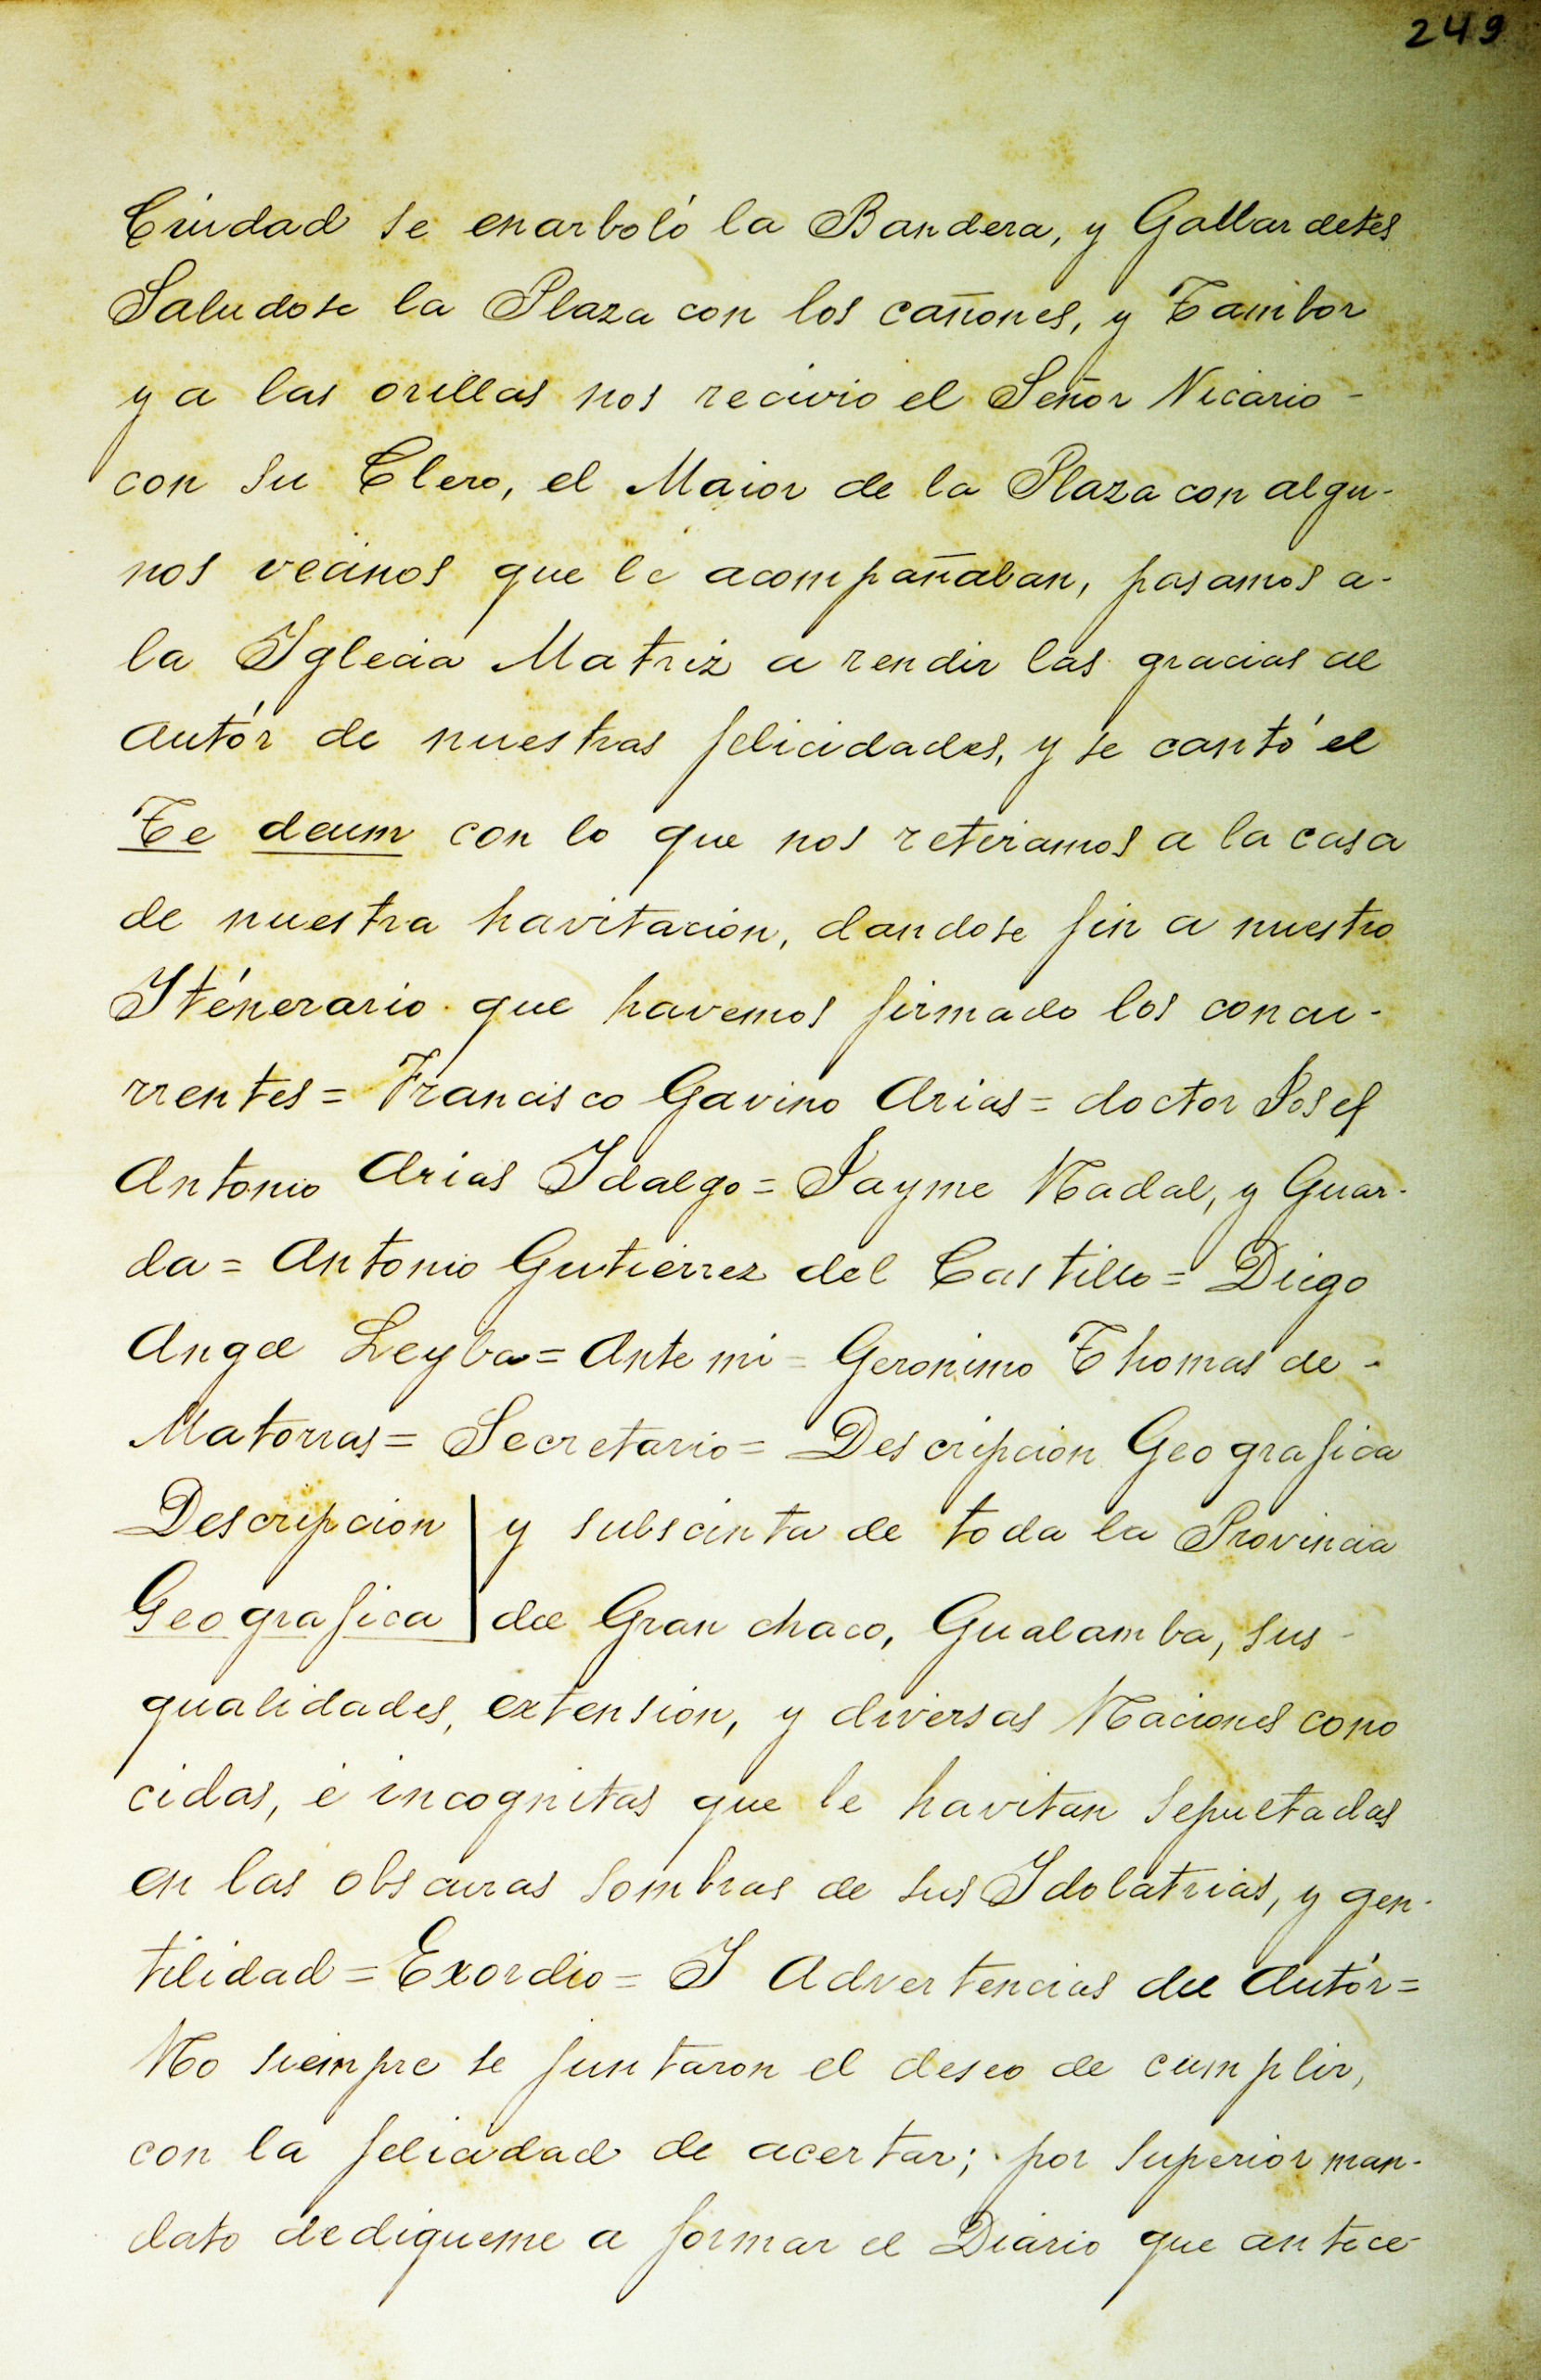 249
Ciudad se enarboló la Bandera, y Gallardetes
Saludose la Plaza con los cañones, y Tambor
y a las orillas nos recivio el Señor Vicario -
con su Clero, el Maior de la Plaza con algu-
nos vecinos que le acompañaban, pasamos a-
la Iglecia Matriz a rendir las gracias al
autór de nuestras felicidades, y se cantó el
Te deum con lo que nos retiramos a la casa
de nuestra havitacion, dandose fin a nuestro
Iténerario que havemos firmado los concu-
rrentes = Francisco Gavino Arias = doctor Josef
Antonio Arias Idalgo = Jayme Nadal, y Guar-
da = Antonio Gutierrez del Castillo = Diego
Angel Leyba = Ante mi = Geronimo Thomas de -
Matorras = Secretario = Descripcion Geografica
Descripcion | y subscinta de toda la Provincia
Geografica | del Gran chaco, Gualamba, sus -
qualidades, extension, y diversas Naciones cono
cidas, é incognitas que le havitan sepultadas
en las obscuras sombras de sus Idolatrias, y gen-
tilidad = Exordio = I Advertencias del Autór =
No siempre se juntaron el deseo de cumplir,
con la felicidad de acertar; por superior man-
dato dediqueme a formar el Diario que antece-